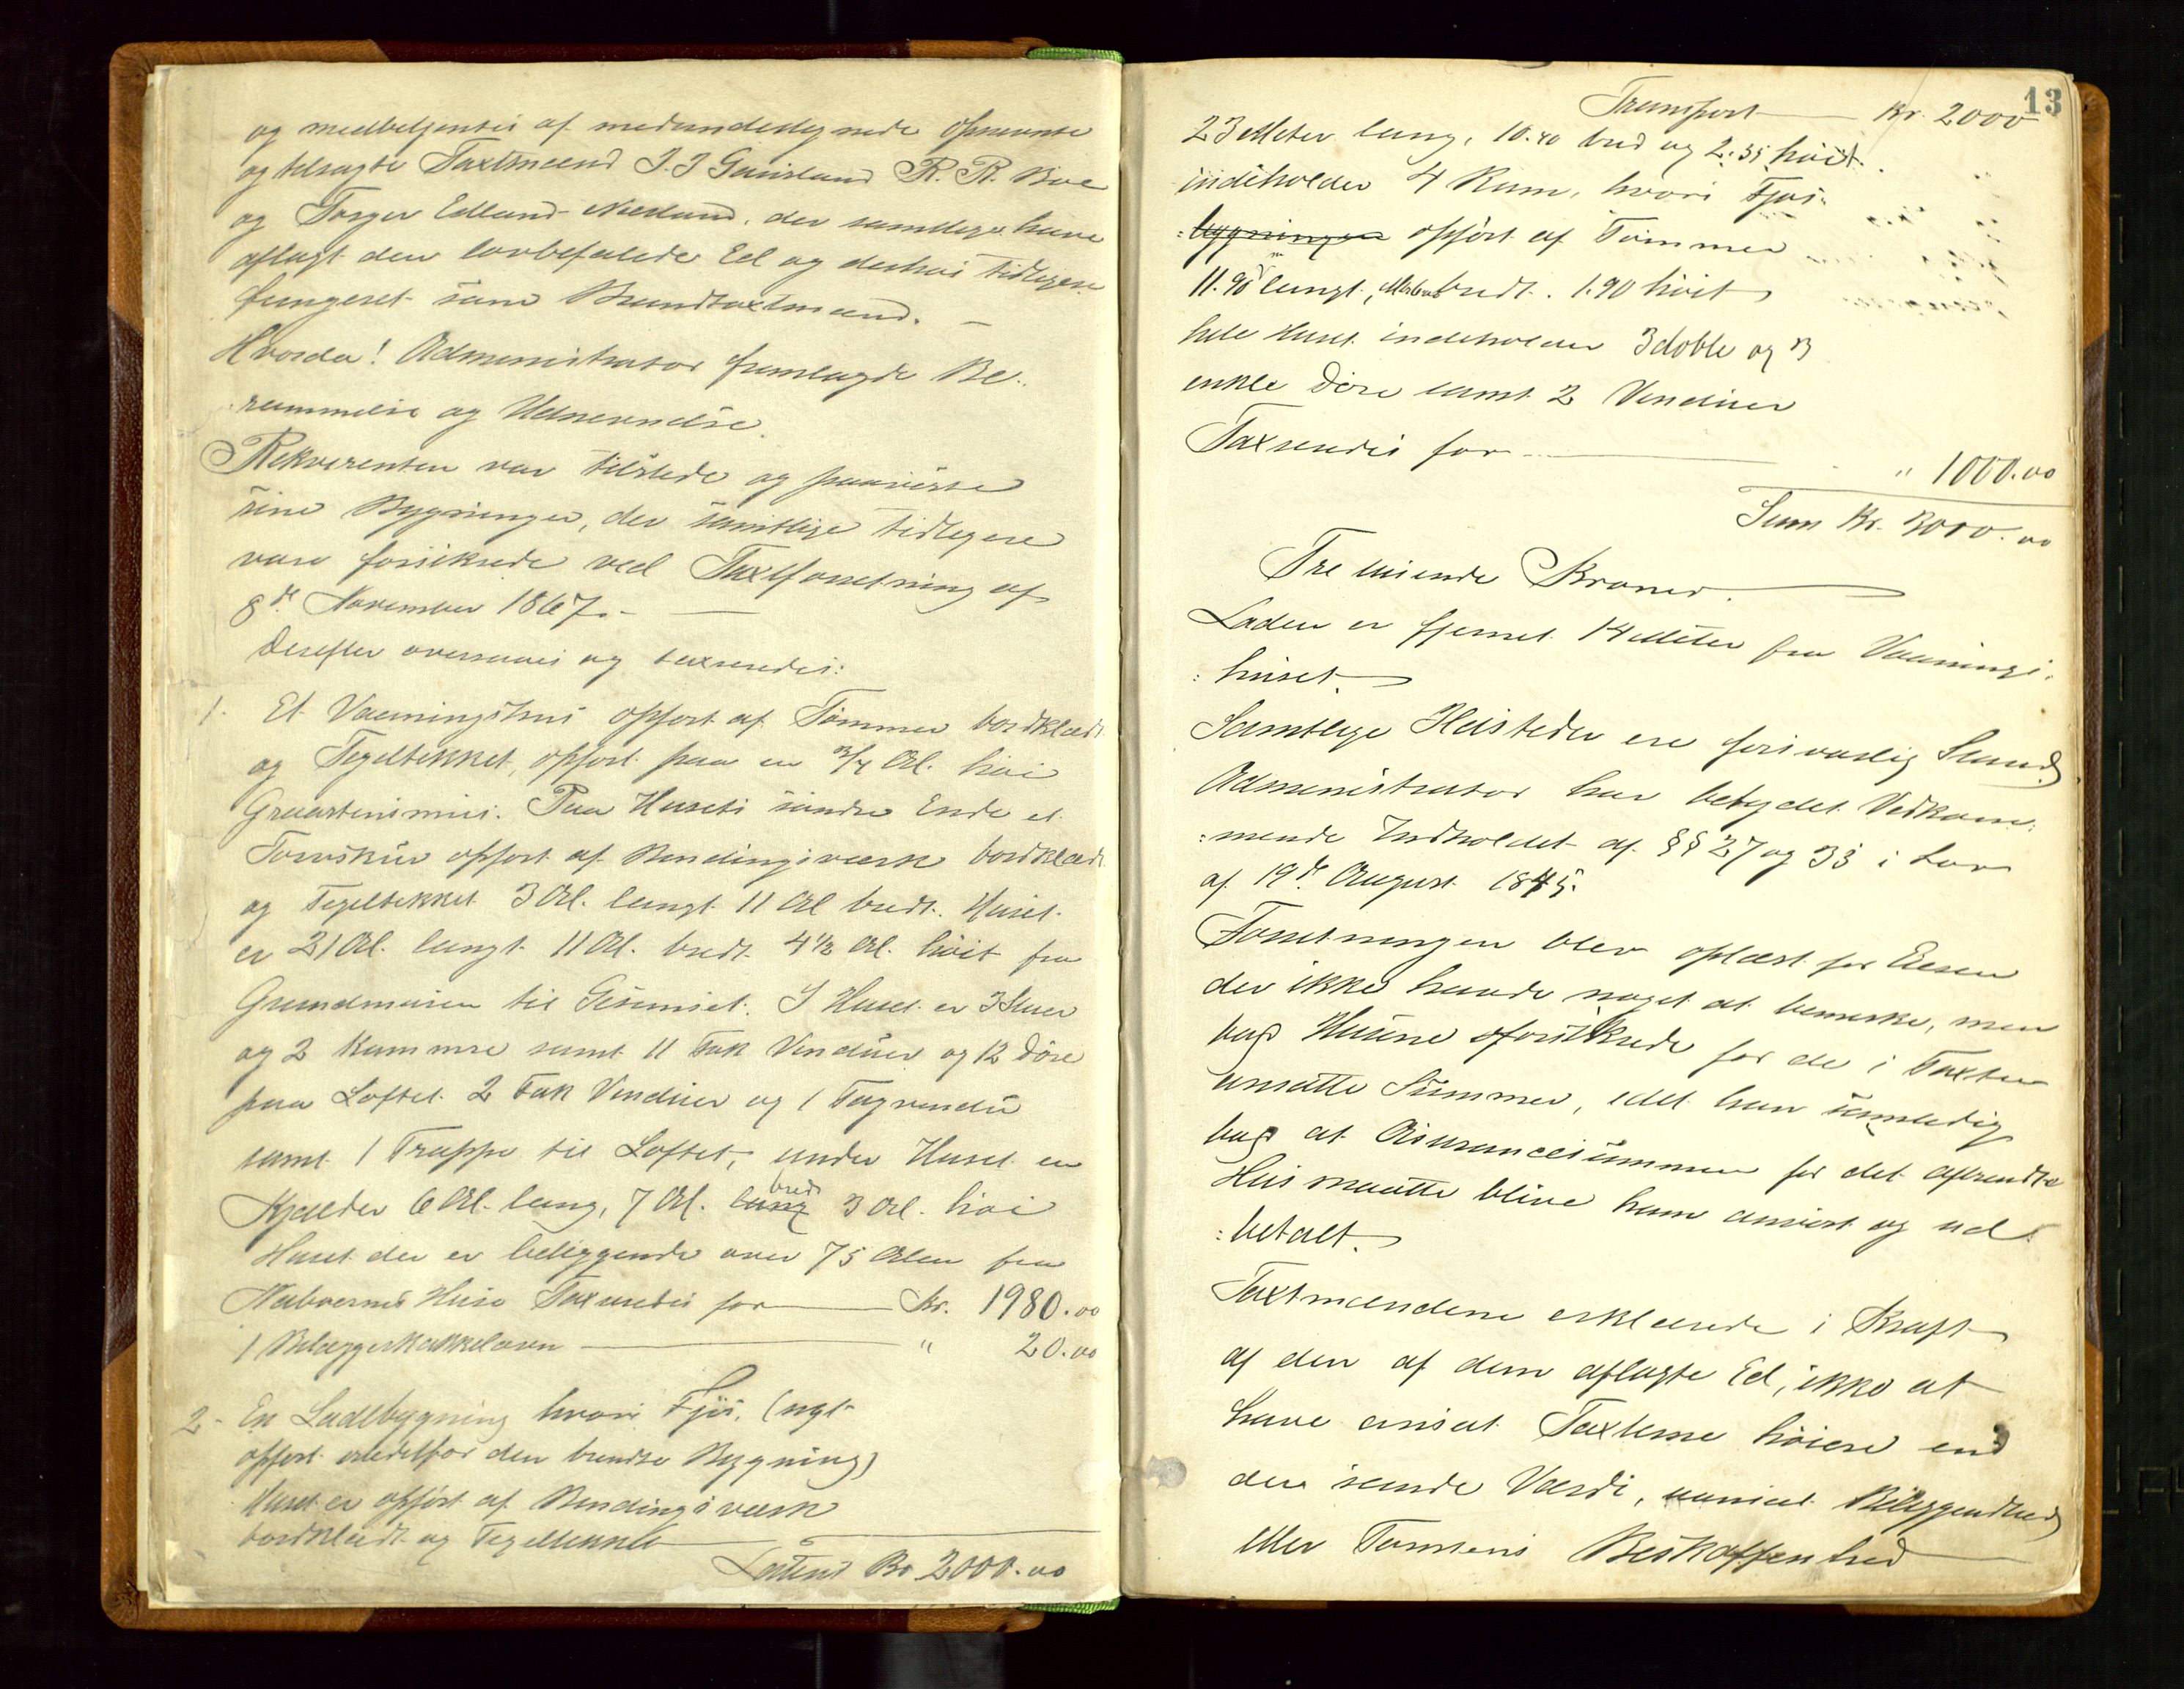 og medbetjentes af medundertegnede opnævnte
og tilsagte Taxtmænd J. J Gauisland R. R. Boe
og Torger Edland-Nærland, der samtlige have
aflagt den lovbefalede Ed og desuden tidligere
fungeret som Brandtaxtmænd. —
Hvorda! Administrator fremlagde Be-
rammelse og Udnævnelse.
Rekvirenten var tilstede og paaviste
sine Bygninger, der samtlige tidligere
vare forsikrede ved Taxtforretning af
8de November 1867. —
Derefter overskues og taxeredes:
1. Et Vaaningshus opført af Tømmer bordklædt
og Tegltækket, opført paa en 3/4 Al. høi
Graastensmur. Paa Husets søndre Ende et
Torvskur opført af Bindingsværk bordklædt
og Tegltækket 3 Al. langt 11 Al bredt. Huset
er 21 Al. langt 11 Al. bredt 4 1/2 Al. høit fra
Grundmuren til Gesimset. I Huset er 3 Stuer
og 2 Kammere samt 11 Fak Vinduer og 12 Døre
paa Loftet 2 Fak Vinduer og 1 Tagvindu
samt 1 Trappe til Loftet, under Huset en
Kjælder 6 Al. lang, 7 Al. lang bred 3 Al. høi
Huset der er beliggende over 75 Alen fra
Naboernes Huse Taxeredes for — Kr. 1980.00
1 Bilæggerkakkelovn — " 20.00
2- En Ladebygning hvori Fjøs, (nyt
opført istedetfor den brændte Bygning)
Huset er opført af Bindingsværk
bordklædt og Tegltækket
Latus Kr 2000.00
13
Transport — Kr. 2000
23 Meter lang, 10.40 bred og 2.35 høit.
indeholder 4 Rum, hvori Fjøs-
:bygningen opført af Tømmer
11.90 m langt, bredt. 1.90 høit
hele Huset indeholder 3 doble og 3
enkle Døre samt 2 Vinduer
Taxeredes for — " 1000.00
Sum Kr. 3000.00
Tre tusende Kroner. —
Laden er fjernet 14 Meter fra Vaanings-
: huset.
Samtlige Ildsteder ere forsvarlig Stand
Administrator har betydet Vedkom-
:mende Indholdet af §§ 27 og 33 i Lov
af 19de August 1845.
Forretningen blev oplæst for Eieren
der ikke havde noget at bemærke, men
bad Husene forsikrede for de i Taxten
ansatte Summer, idet han samtidig
bad at Assurancesummen for det afbrændte
Hus maatte blive ham anvist og ud-
:betalt.
Taxtmændene erklærede i Kraft
af den af dem aflagte Ed, ikke at
have ansat Taxterne høiere end
den sande Værdi, uanset Beliggenhed
eller Tomtens Beskaffenhed —